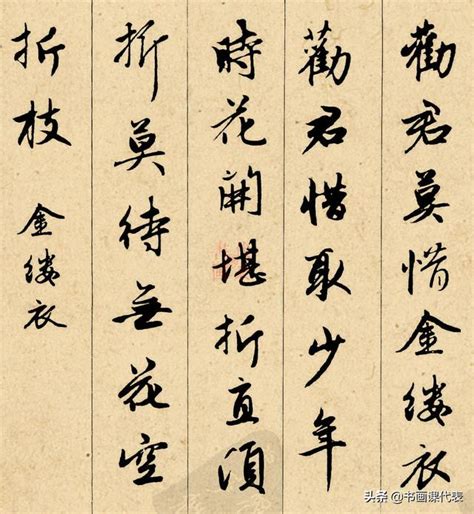 勸君莫惜金缕衣
勸君惜取少年
時花開堪折直須
折莫待無花空
折枝
金缕衣
头条 @书画课代表